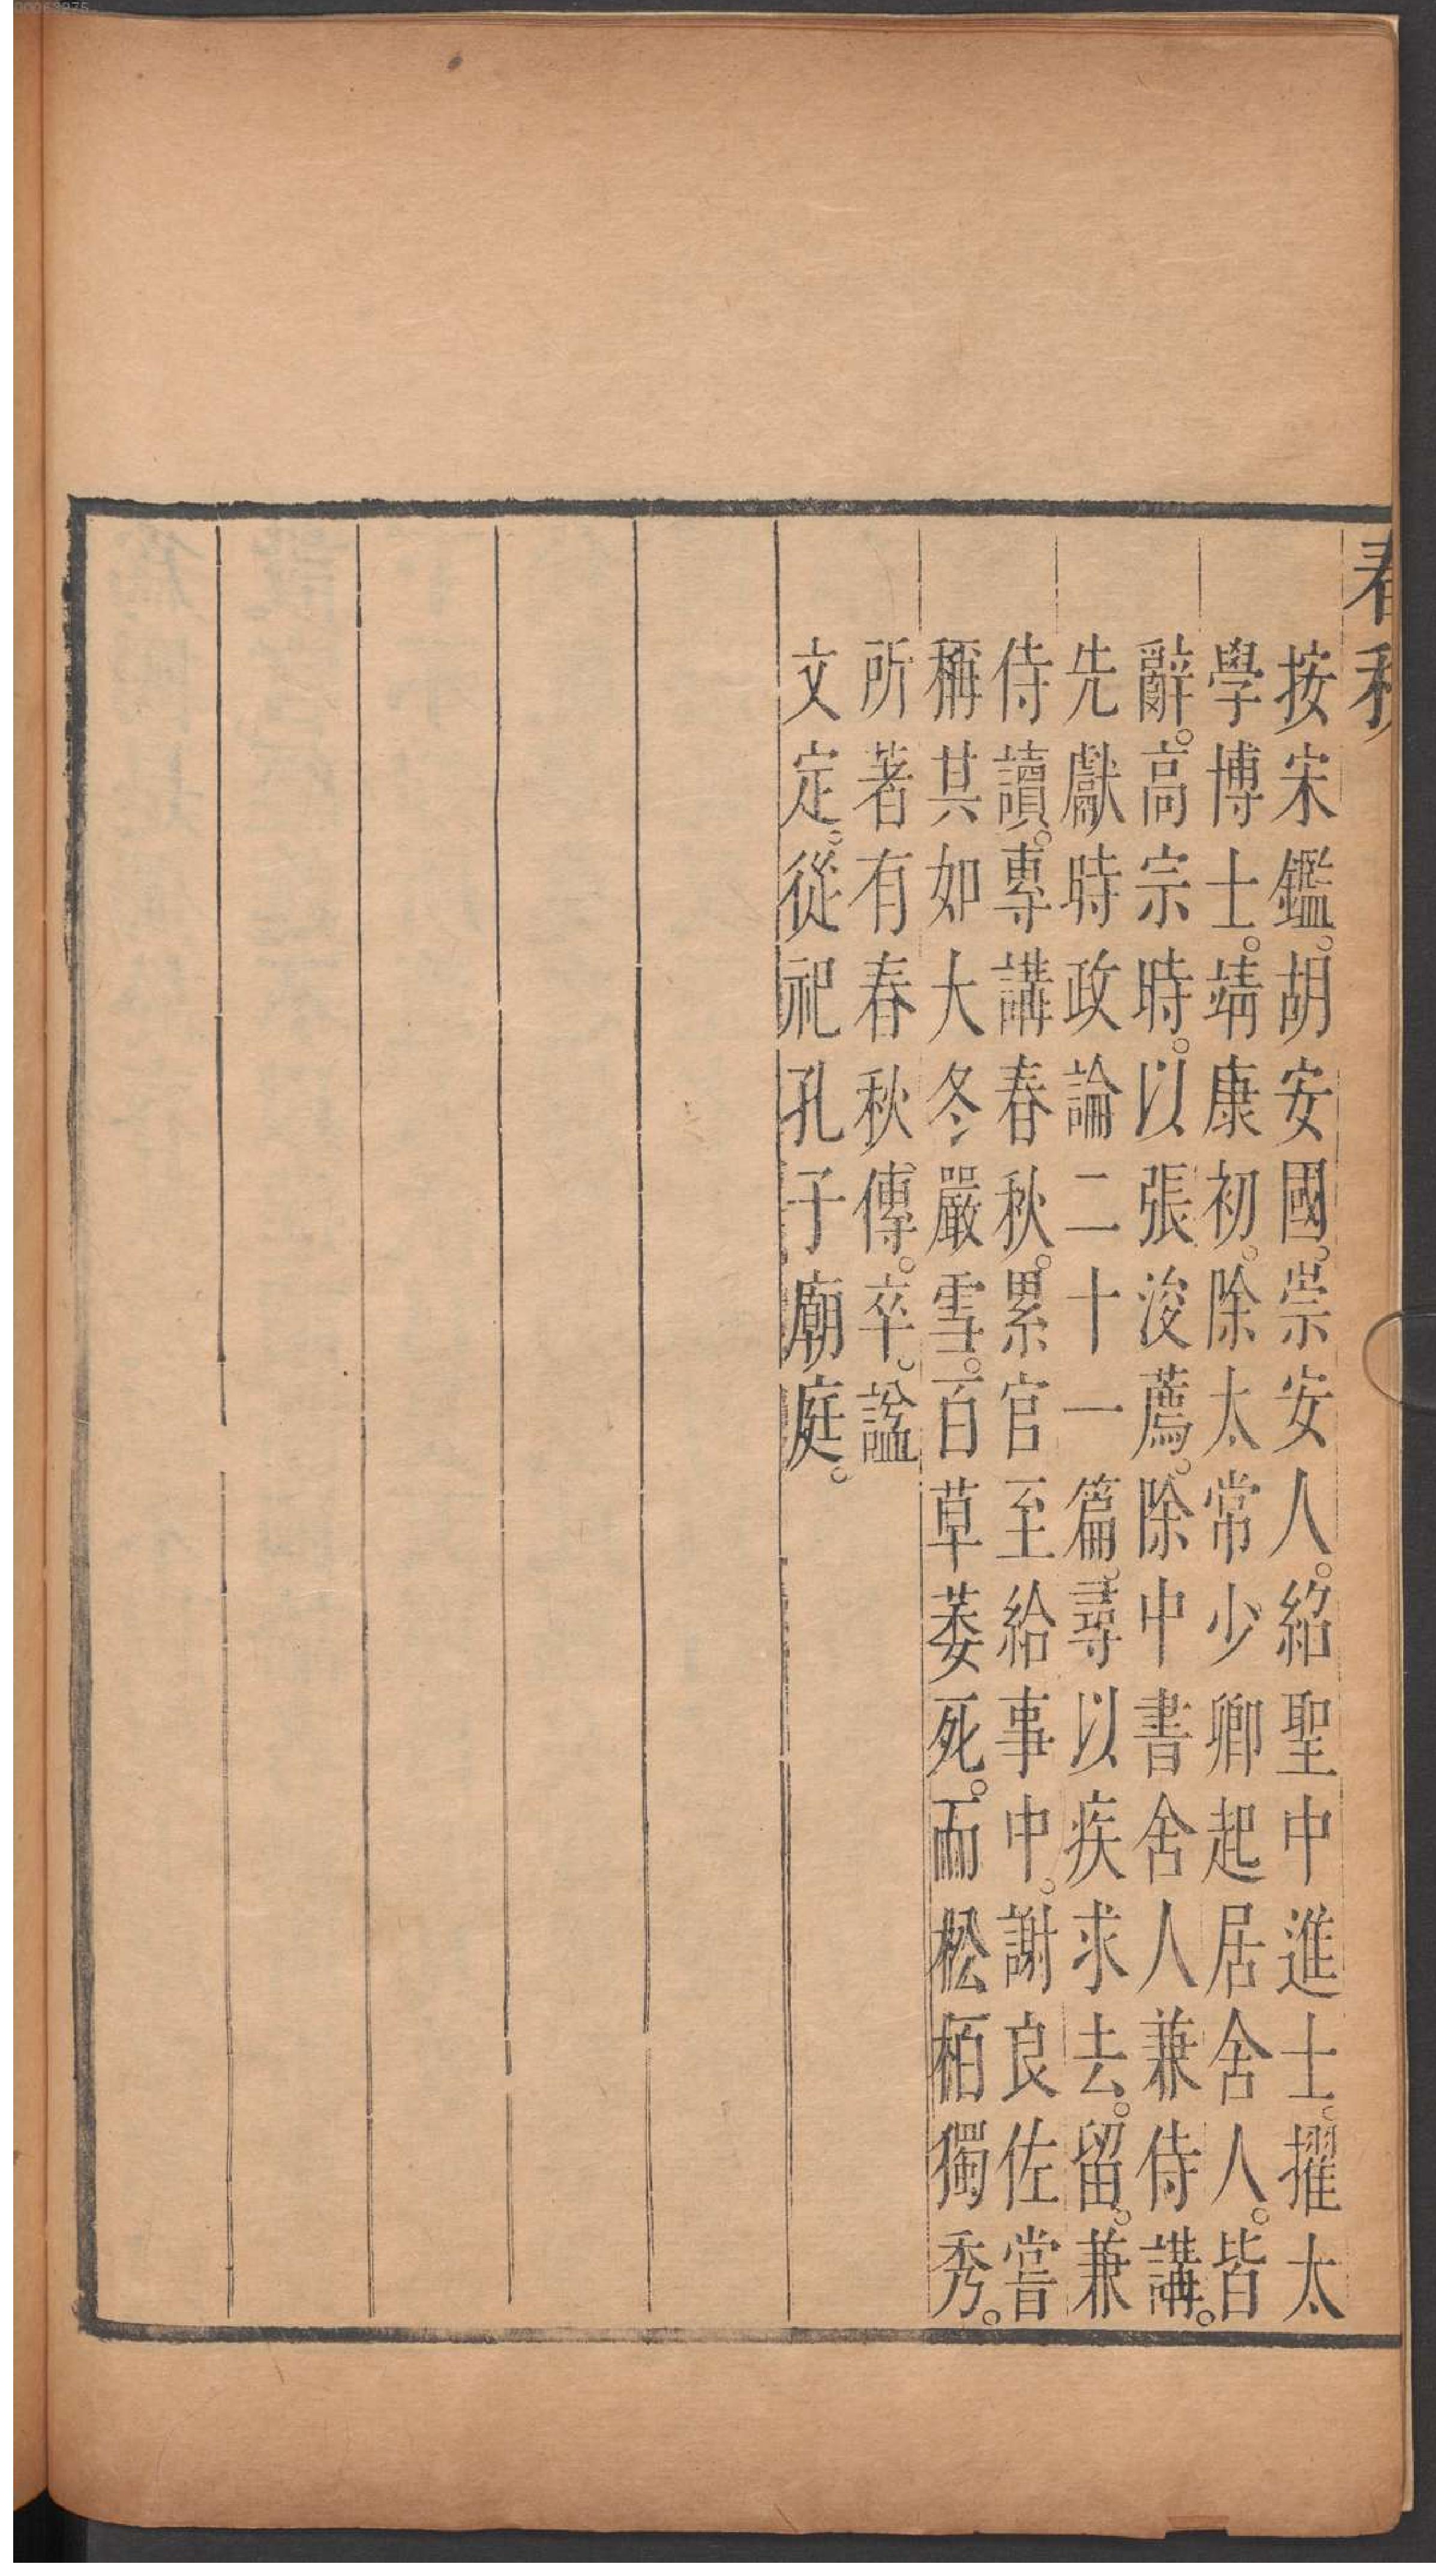 春秋
按宋鑑。胡安國。崇安人。紹聖中進士。擢太
學博士。靖康初。除太常少卿起居舍人。皆
辭。高宗時。以張浚薦。除中書舍人兼侍講。
先獻時政論二十一篇。尋以疾求去。留。兼
侍讀。專講春秋。累官至給事中。謝良佐嘗
稱其如大冬嚴雪。百草萎死。而松栢獨秀。
所著有春秋傳。卒。諡
文定。從祀孔子廟庭。